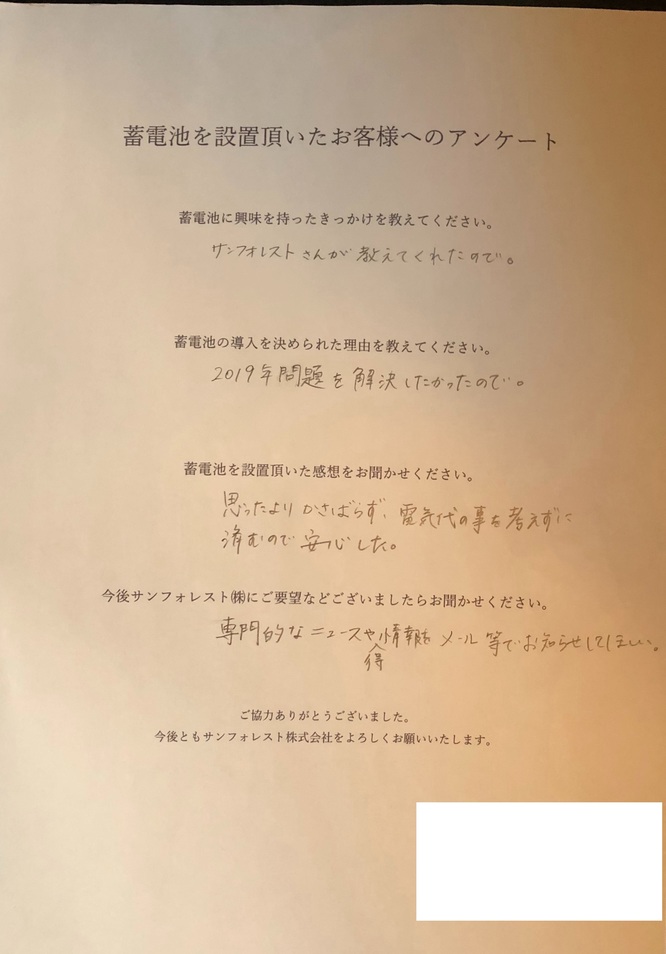 蓄電池を設置頂いたお客様へのアンケート
蓄電池に興味を持ったきっかけを教えてください。
サンフォレストさんが教えてくれたので。
蓄電池の導入を決められた理由を教えてください。
2019年問題を解決したかったので。
蓄電池を設置頂いた感想をお聞かせください。
思ったよりかさばらず、電気代の事を考えずに
済むので安心した。
今後サンフォレスト㈱にご要望などございましたらお聞かせください。
専門的なニュースやお得情報をメール等でお知らせしてほしい。
ご協力ありがとうございました。
今後ともサンフォレスト株式会社をよろしくお願いいたします。